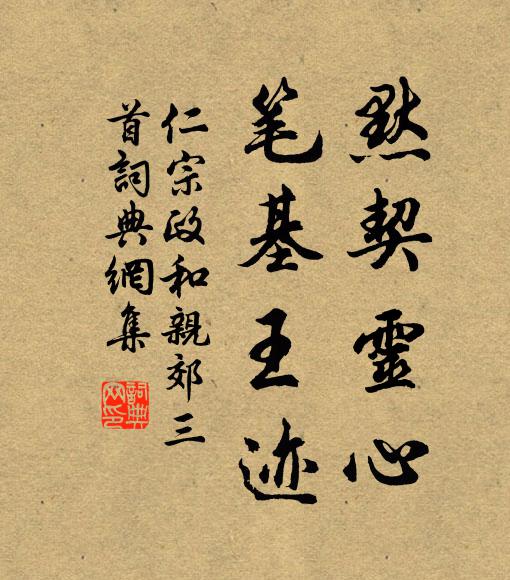 默契靈心
笔基王迹
仁宗政和親郊三
首詞典網集
詞典
网印